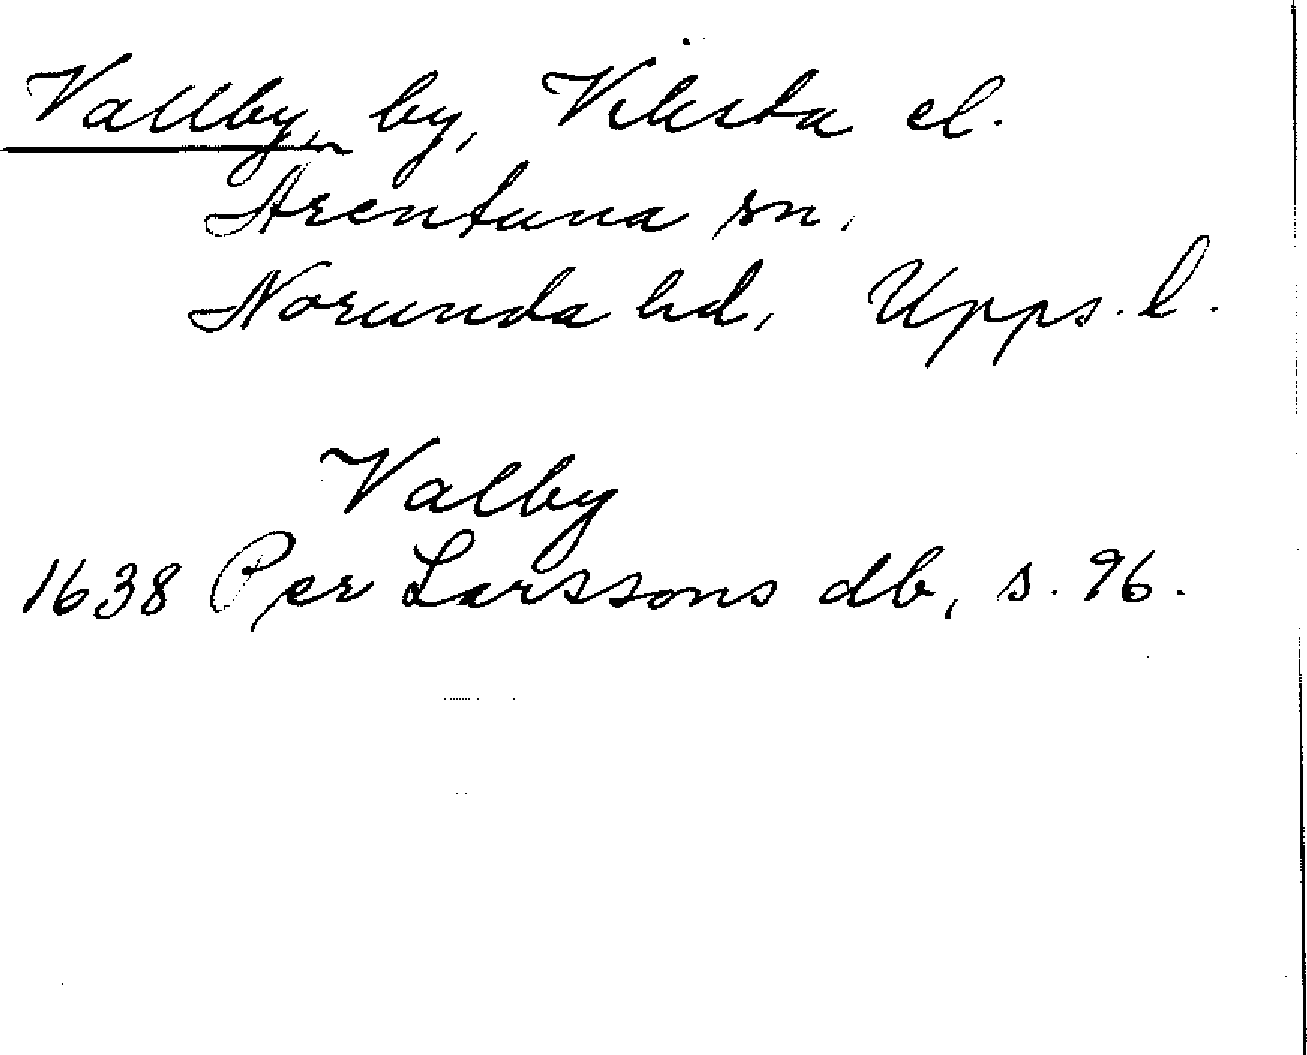 Vallby, by, Viksta el.
Ärentuna sn,
Norunda hd, Upps. l.
Valby
1638 Per Larssons db, s. 96.